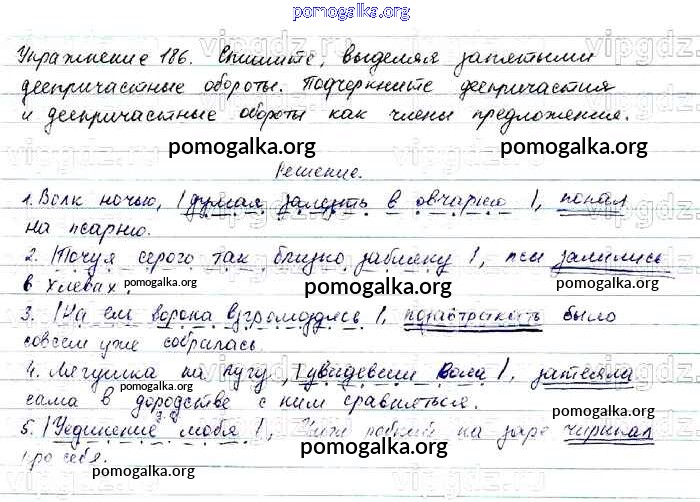 pomogalka.org
Упражнение 186. Спишите, выделяя запятыми
деепричастные обороты. Подчеркните деепричастия
и деепричастные обороты как члены предложения.
pomogalka.org pomogalka.org
Решение.
1. Волк ночью, |думая залезть в овчарню|, попал
на псарню.
pomogalka.org
2. |Почуя серого так близко забияку|, псы залились
в хлевах. pomogalka.org pomogalka.org
3. |На ель ворона взгромоздясь|, позавтракать было
совсем уже собралась.
pomogalka.org
4. Лягушка на лугу, |увидевши вола|, затеяла
pomogalka.org
сама в дородстве с ним сравняться.
pomogalka.org
5. |Уединение любя|, чиж на заре чирикал
про себя.
pomogalka.org pomogalka.org